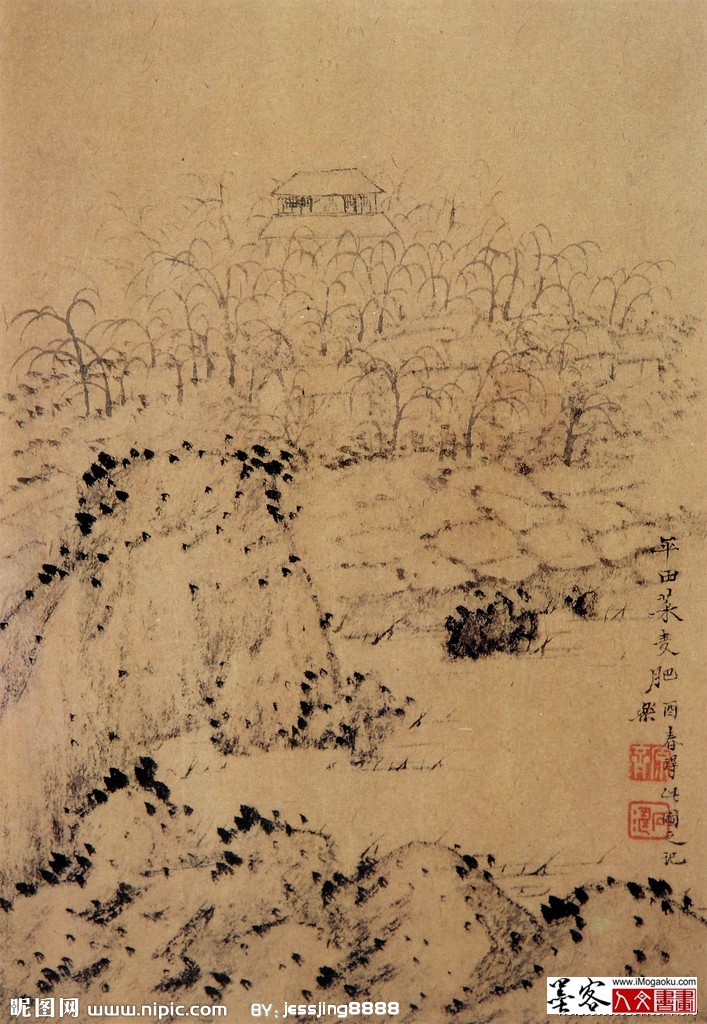 平田菜麦肥
酉春得此圖之记
樂
昵图网 www.nipic.com BY: jessjing8888
墨客
www.iMogaoku.com
人文書畫